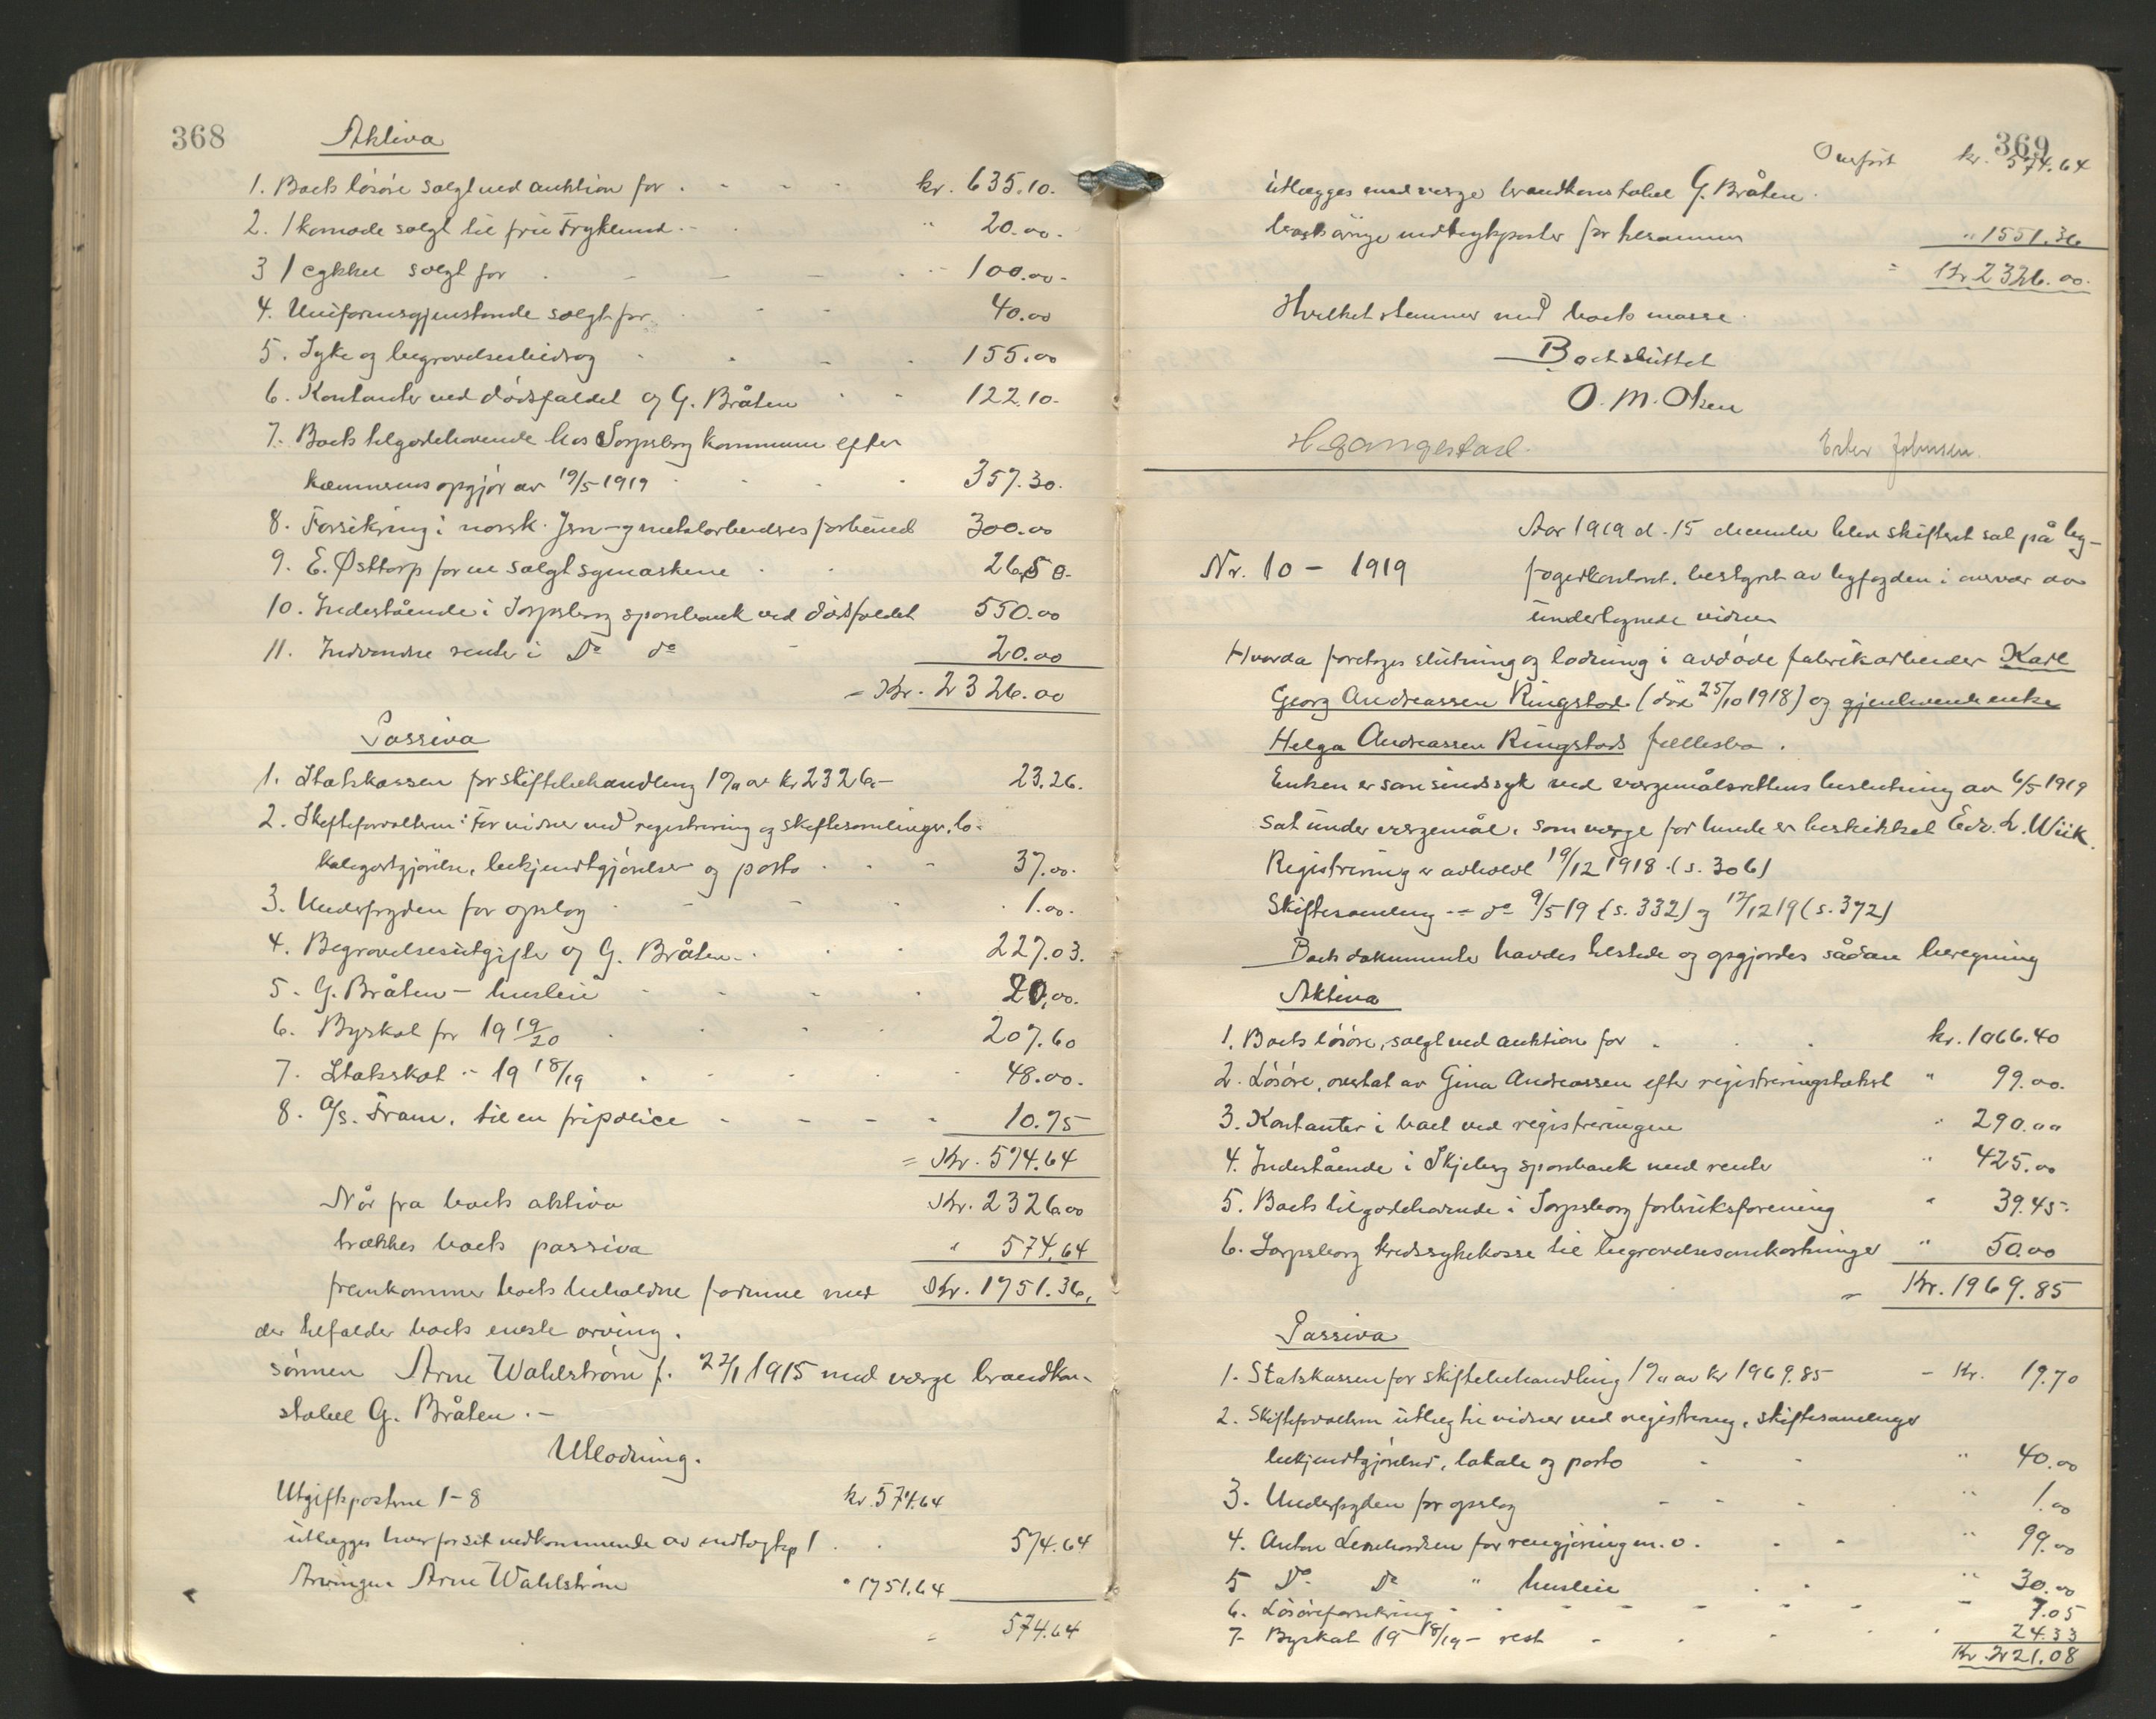 368
Aktiva
1. Boets lösöre solgt ved auktion for . - - - kr. 635.10.
2. 1 komode solgt til frü Fryklund - . " 20.00.
3 1 cykkel solgt for . - - - . - 100.00-
4. Uniformsgjenstande solgt for . - - 40.00
5. Syke og begravelsesbidrag - . - . 155.00
6. Kontanter ved dödsfaldet og G. Bråten . - 122.10-
7. Boets tilgodehavende hos Sarpsborg kommune efter
kæmnerens opgjör av 19/5 1919 . - . . 357.30.
8. Forsikring i norsk Jern- og metalarbeidres forbund 300.00
9. E. Østtorp for en solgt symaskine . . 26,50-
10. Indestående i Sarpsborg sparebank ved dödsfaldet 550.00
11. Indvundne renter i Do do - 20.00
= Kr. 2326.00
Passiva
1. Statskassen for skiftebehandling 1% av kr 2326.- 23.26.
2. Skifteforvalteren: For vidner ved registrering og skiftesamlinger, lo-
kalegodtgjörelse, bekjendtgjörelser og porto . . - 37.00.
3. Underfogden for opslag . - - - . 1.00.
4. Begravelsesutgifter og G. Bråten - . . . 227.03.
5. G. Bråten - husleie - - - . 20,00.
6. Byskat for 19 19/20 . . . . 207.60
7. Statskat - 19 18/19 . - . . - 48.00.
8. A/s. Fram, til en fripolice - - - - 10.75
= Kr. 574.64
Når fra boets aktiva Kr. 2326.00
trækkes boets passiva " 574.64
fremkommer boets beholdne formue med Kr. 1751.36.
der tilfalder boets eneste arving.
sönnen Arne Wahlström f. 22/1 1915 med verge brandkon-
stabel G. Bråten. -
Utlodning.
Utgiftsposterne 1-8 kr. 574.64
utlægges hver for sit vedkommende av indtægtsp 1 . . 574.64
Arvingen Arne Wahlström " 1751.64
= 574.64
369
Overfört kr. 574.64
utlægges med verge brandkonstabel G. Bråten.
boets övrige indtægtsposter for tilsammen " 1551.36
= Kr. 2326.00.
Hvilket stemmer med boets masse.
Boet sluttet
O. M. Olsen
H Gangestad. Ester Johnsen.
Aar 1919 d. 15 december blev skifteret sat på by-
Nr. 10 - 1919 fogedkontoret. bestyret av byfogden i overvær av
undertegnede vidner
Hvorda foretoges slutning og lodning i avdöde fabrikarbeider Karl
Georg Andreassen Ringstad (död 25/10 1918) og gjenlevende enke
Helga Andreassen Ringstads fællesbo.
Enken er som sindssyk ved vergemålsrettens beslutning av 6/5 1919
sat under vergemål. som verge for hende er beskikket Edv. L. Wiik.
Registrering er avholdt 19/12 1918 (s. 306)
Skiftesamling -- do 9/5 19 (s. 332) og 12/12 19 (s. 372)
Boets dokumenter havdes tilstede og opgjordes sådan beregning
Aktiva
1. Boets lösöre, solgt ved auktion for . . . kr. 1066.40
2. Lösöre, overtat av Gina Andreassen efter registreringstakst " 99.00.
3. Kontanter i boet ved registreringen " 290.00
4. Indestående i Skjeberg sparebank med renter " 425.00
5. Boets tilgodehavende i Sarpsborg forbruksforening " 39.45-
6. Sarpsborg kredssykekasse til begravelsesomkostninger " 50.00
= Kr. 1969.85
Passiva
1. Statskassen for skiftebehandling 1% av kr 1969.85 - Kr. 19.70
2. Skifteforvalteren utlæg til vidner ved registrering, skiftesamlinger
bekjendtgjörelser, lokale og porto - - " 40.00
3. Underfogden for opslag - - - . " 1.00
4. Anton for rengjöring m.v. . - " 99.00
5 Do Do " husleie . . " 30.00
6. Lösöreforsikring - - - - - - - 7.05
7- Byskat 19 18/19 - rest - . - . . 24.33
Kr 221.08